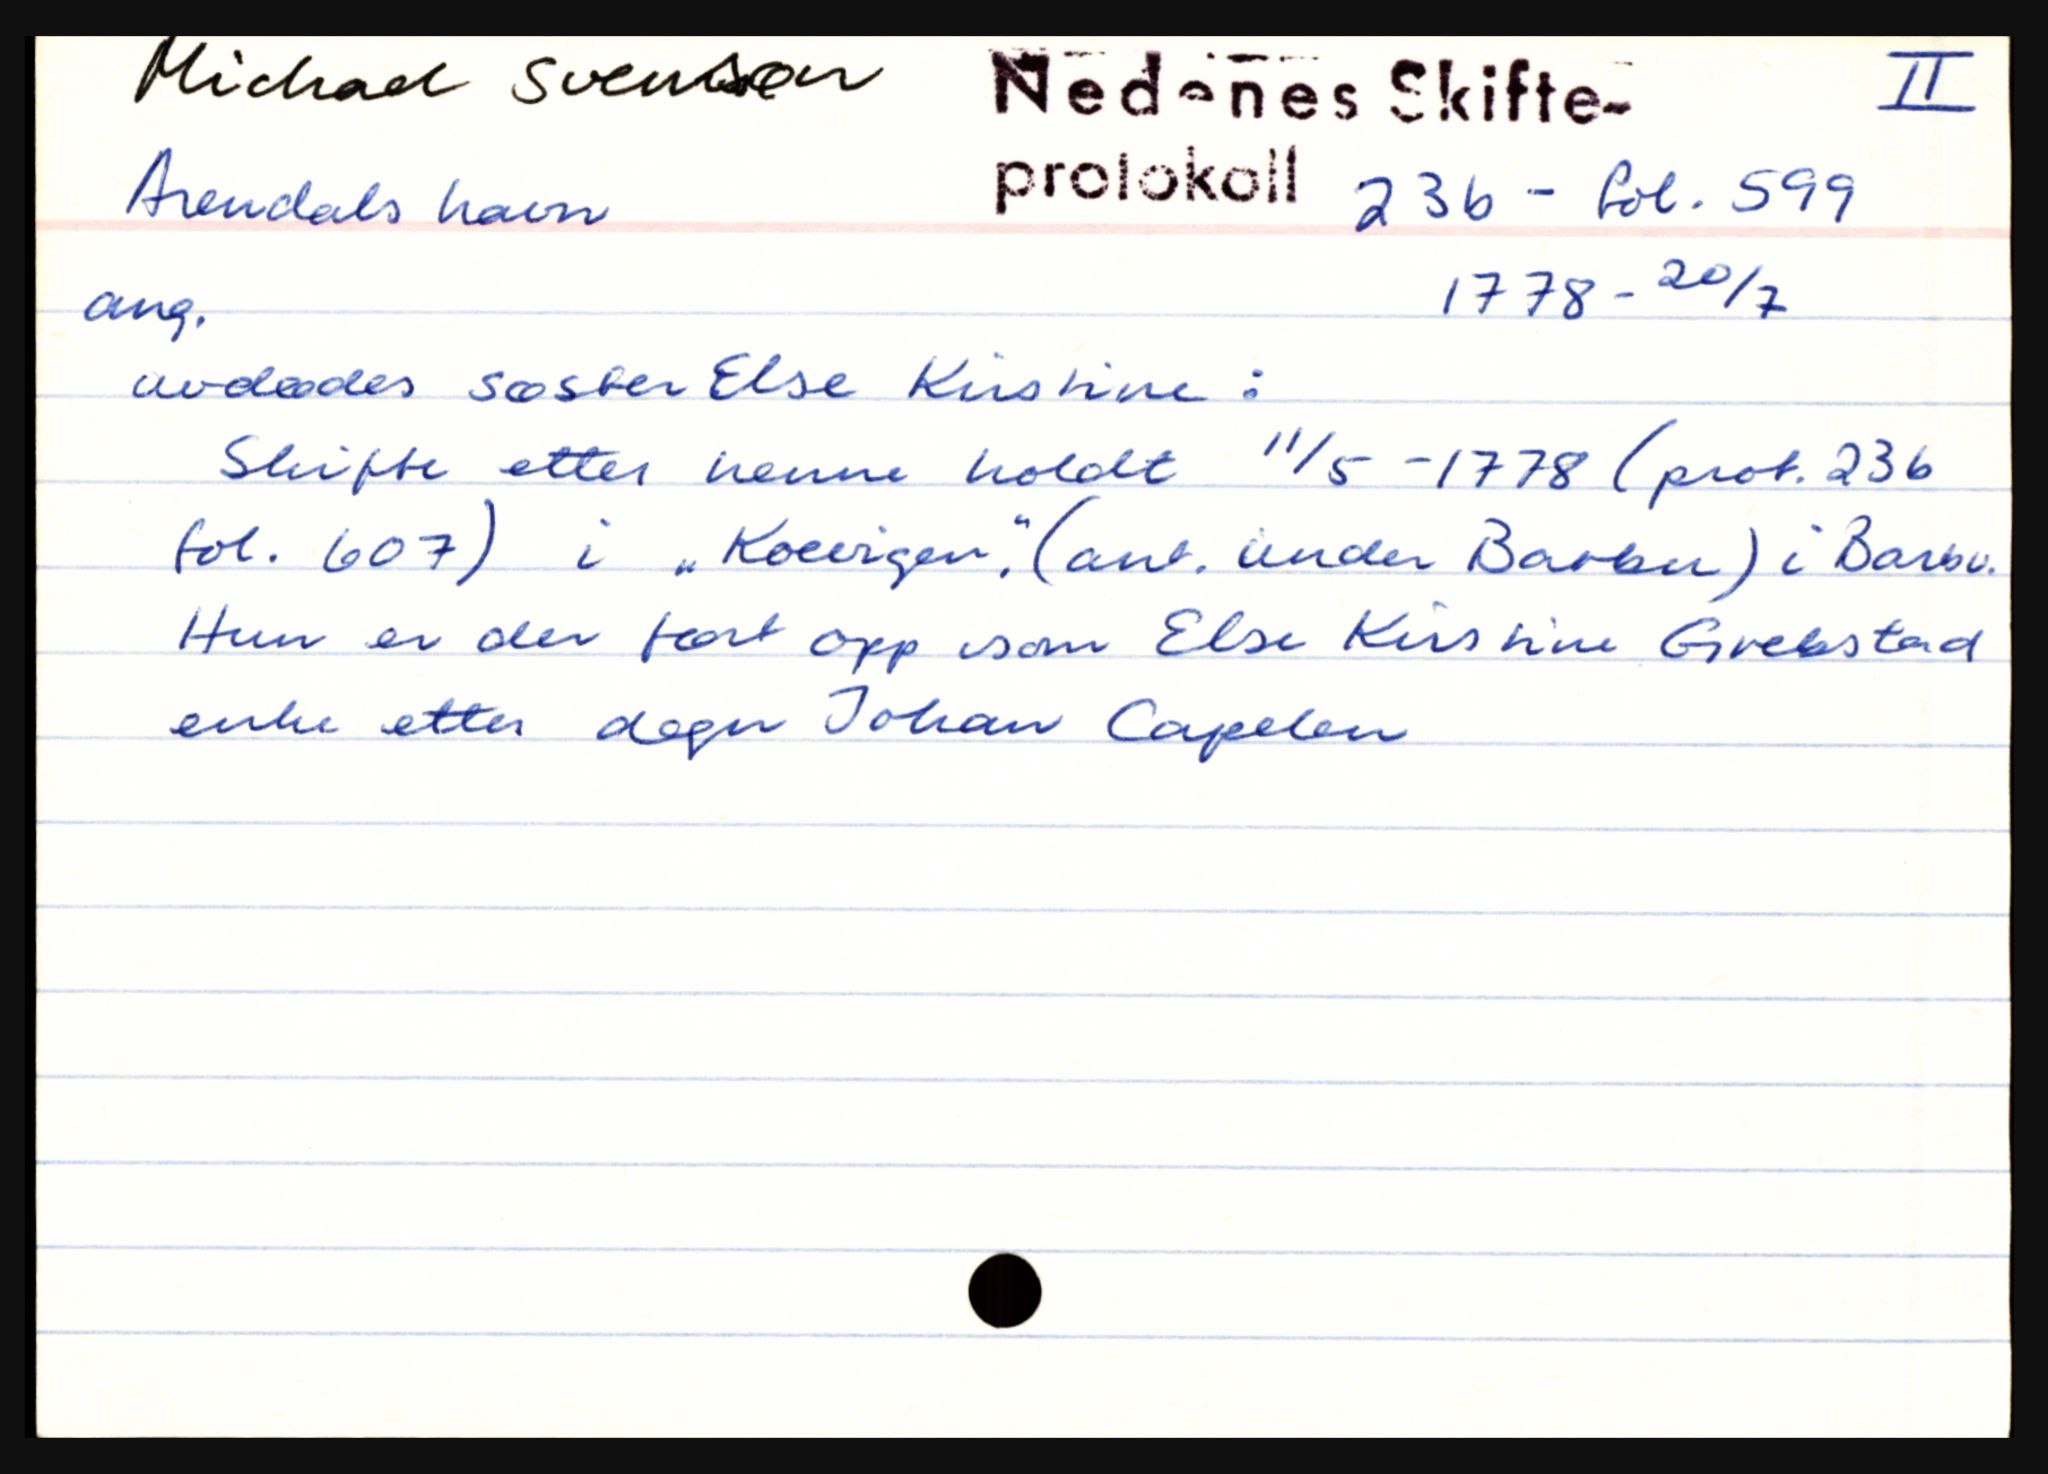 Michael Svendsen Nedenes Skifte- II
Arendals havn protokoll 23b - fol. 599
ang. 1778 - 20/7
avdødes søster Else Kirstine :
Skifte etter henne holdt 11/5 - 1778 (prot. 23b
fol. 607) i „Kolvigen". (ant. under Barbu) i Barbu.
Hun er der ført opp som Else Kirstine Grebstad
enke etter degn Johan Capelen